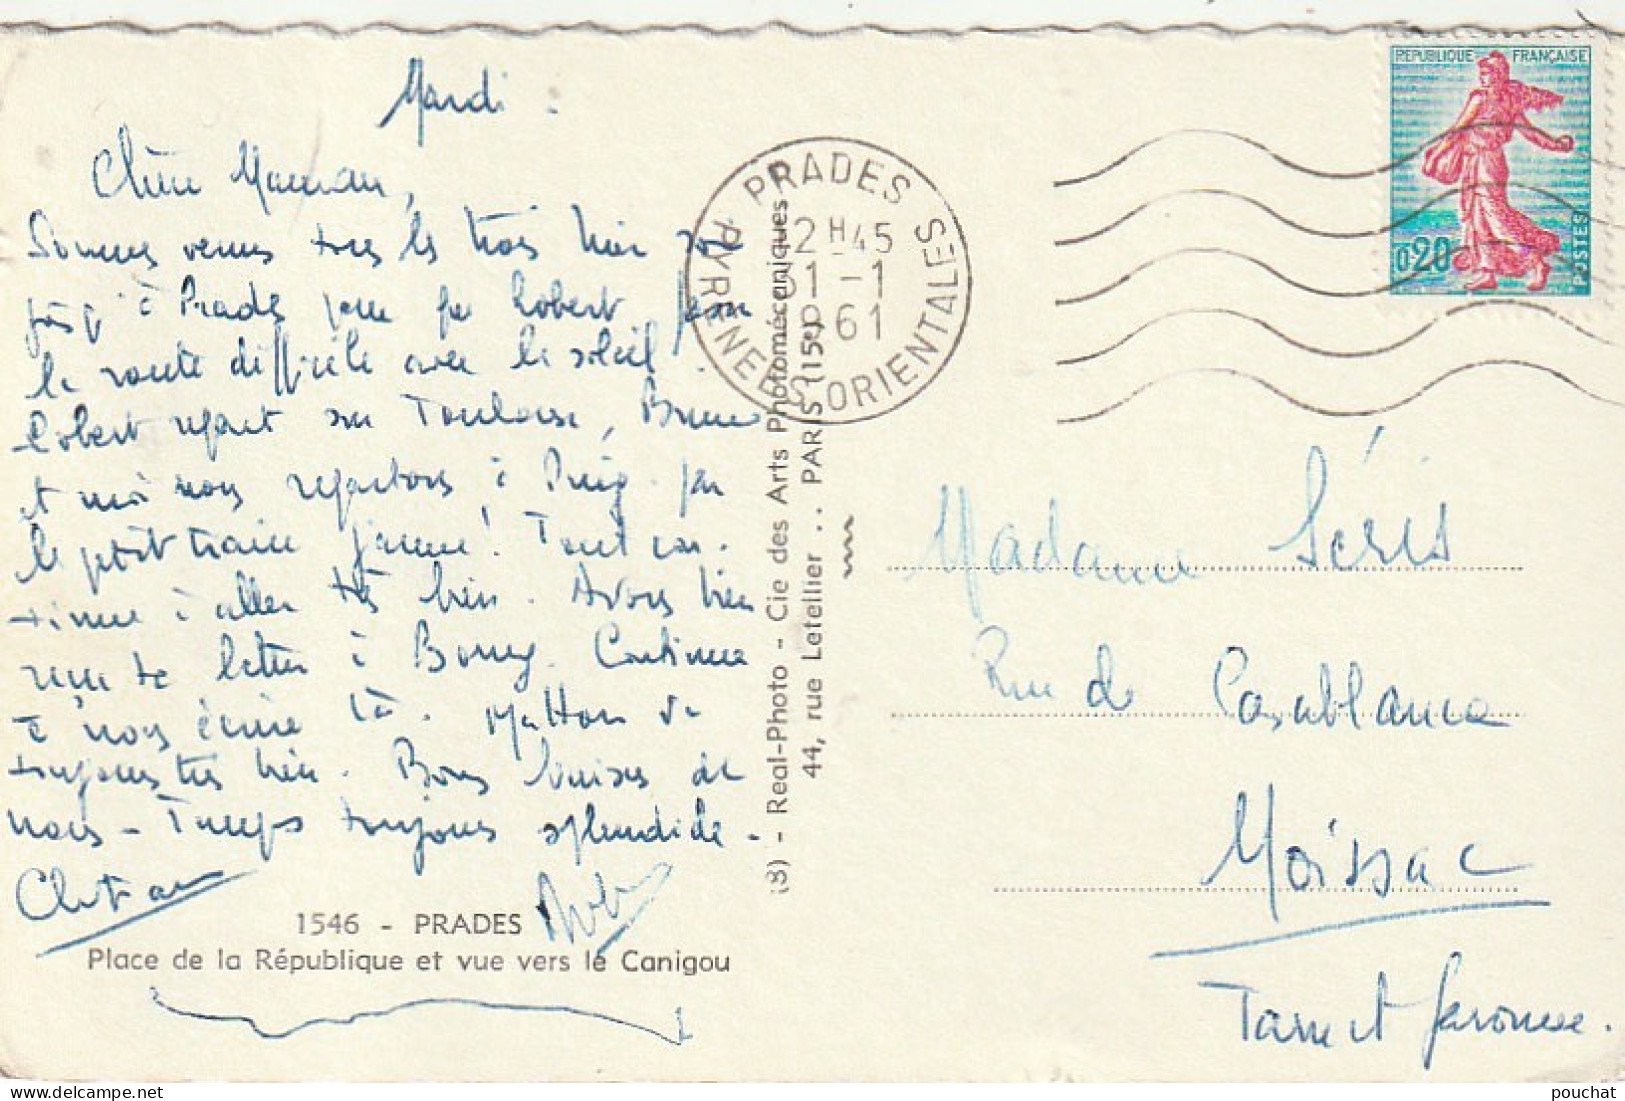 Mardi.
Chère Maman,
Sommes venus tous les trois hier soir
à Prades par Robert
la route difficile avec le soleil.
Robert repart sur Toulouse, Bruno
et moi nous repartons à Puig par
le petit train jaune! Tout con-
tinue à aller très bien. Avons bien
reçu ta lettre à Bourg. Continue
à nous écrire là. va
toujours très bien. Bons baisers de
nous - Temps toujours splendide -
Christian
1546 - PRADES
Place de la République et vue vers le Canigou
(3) - Real-Photo - Cie des Arts Photomécaniques
44, rue Letellier .. PARIS (15e)
PRADES
PYRENEES ORIENTALES
12H45
31-1
1961
REPUBLIQUE FRANÇAISE
0,20
POSTES
Madame Séris
Rue de Casablanca
Moissac
Tarn et Garonne.
pouchat